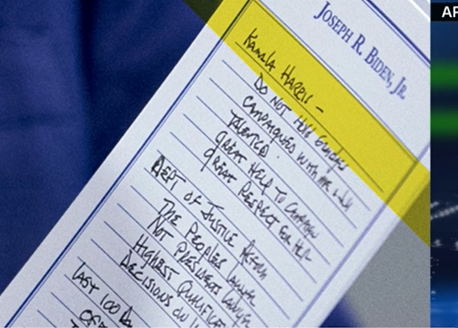 JOSEPH R. BIDEN, JR.
AP
KAMALA HARRIS –
DO NOT HOLD GRUDGES
CAMPAIGNED WITH ME &
TALENTED.
GREAT HELP TO CAMPAIGN
GREAT RESPECT FOR HER
DEPT OF JUSTICE
THE PEOPLES LAWYER
NOT PRESIDENT LAWYER
HIGHEST
DECISIONS ON
LAST 100 DAYS